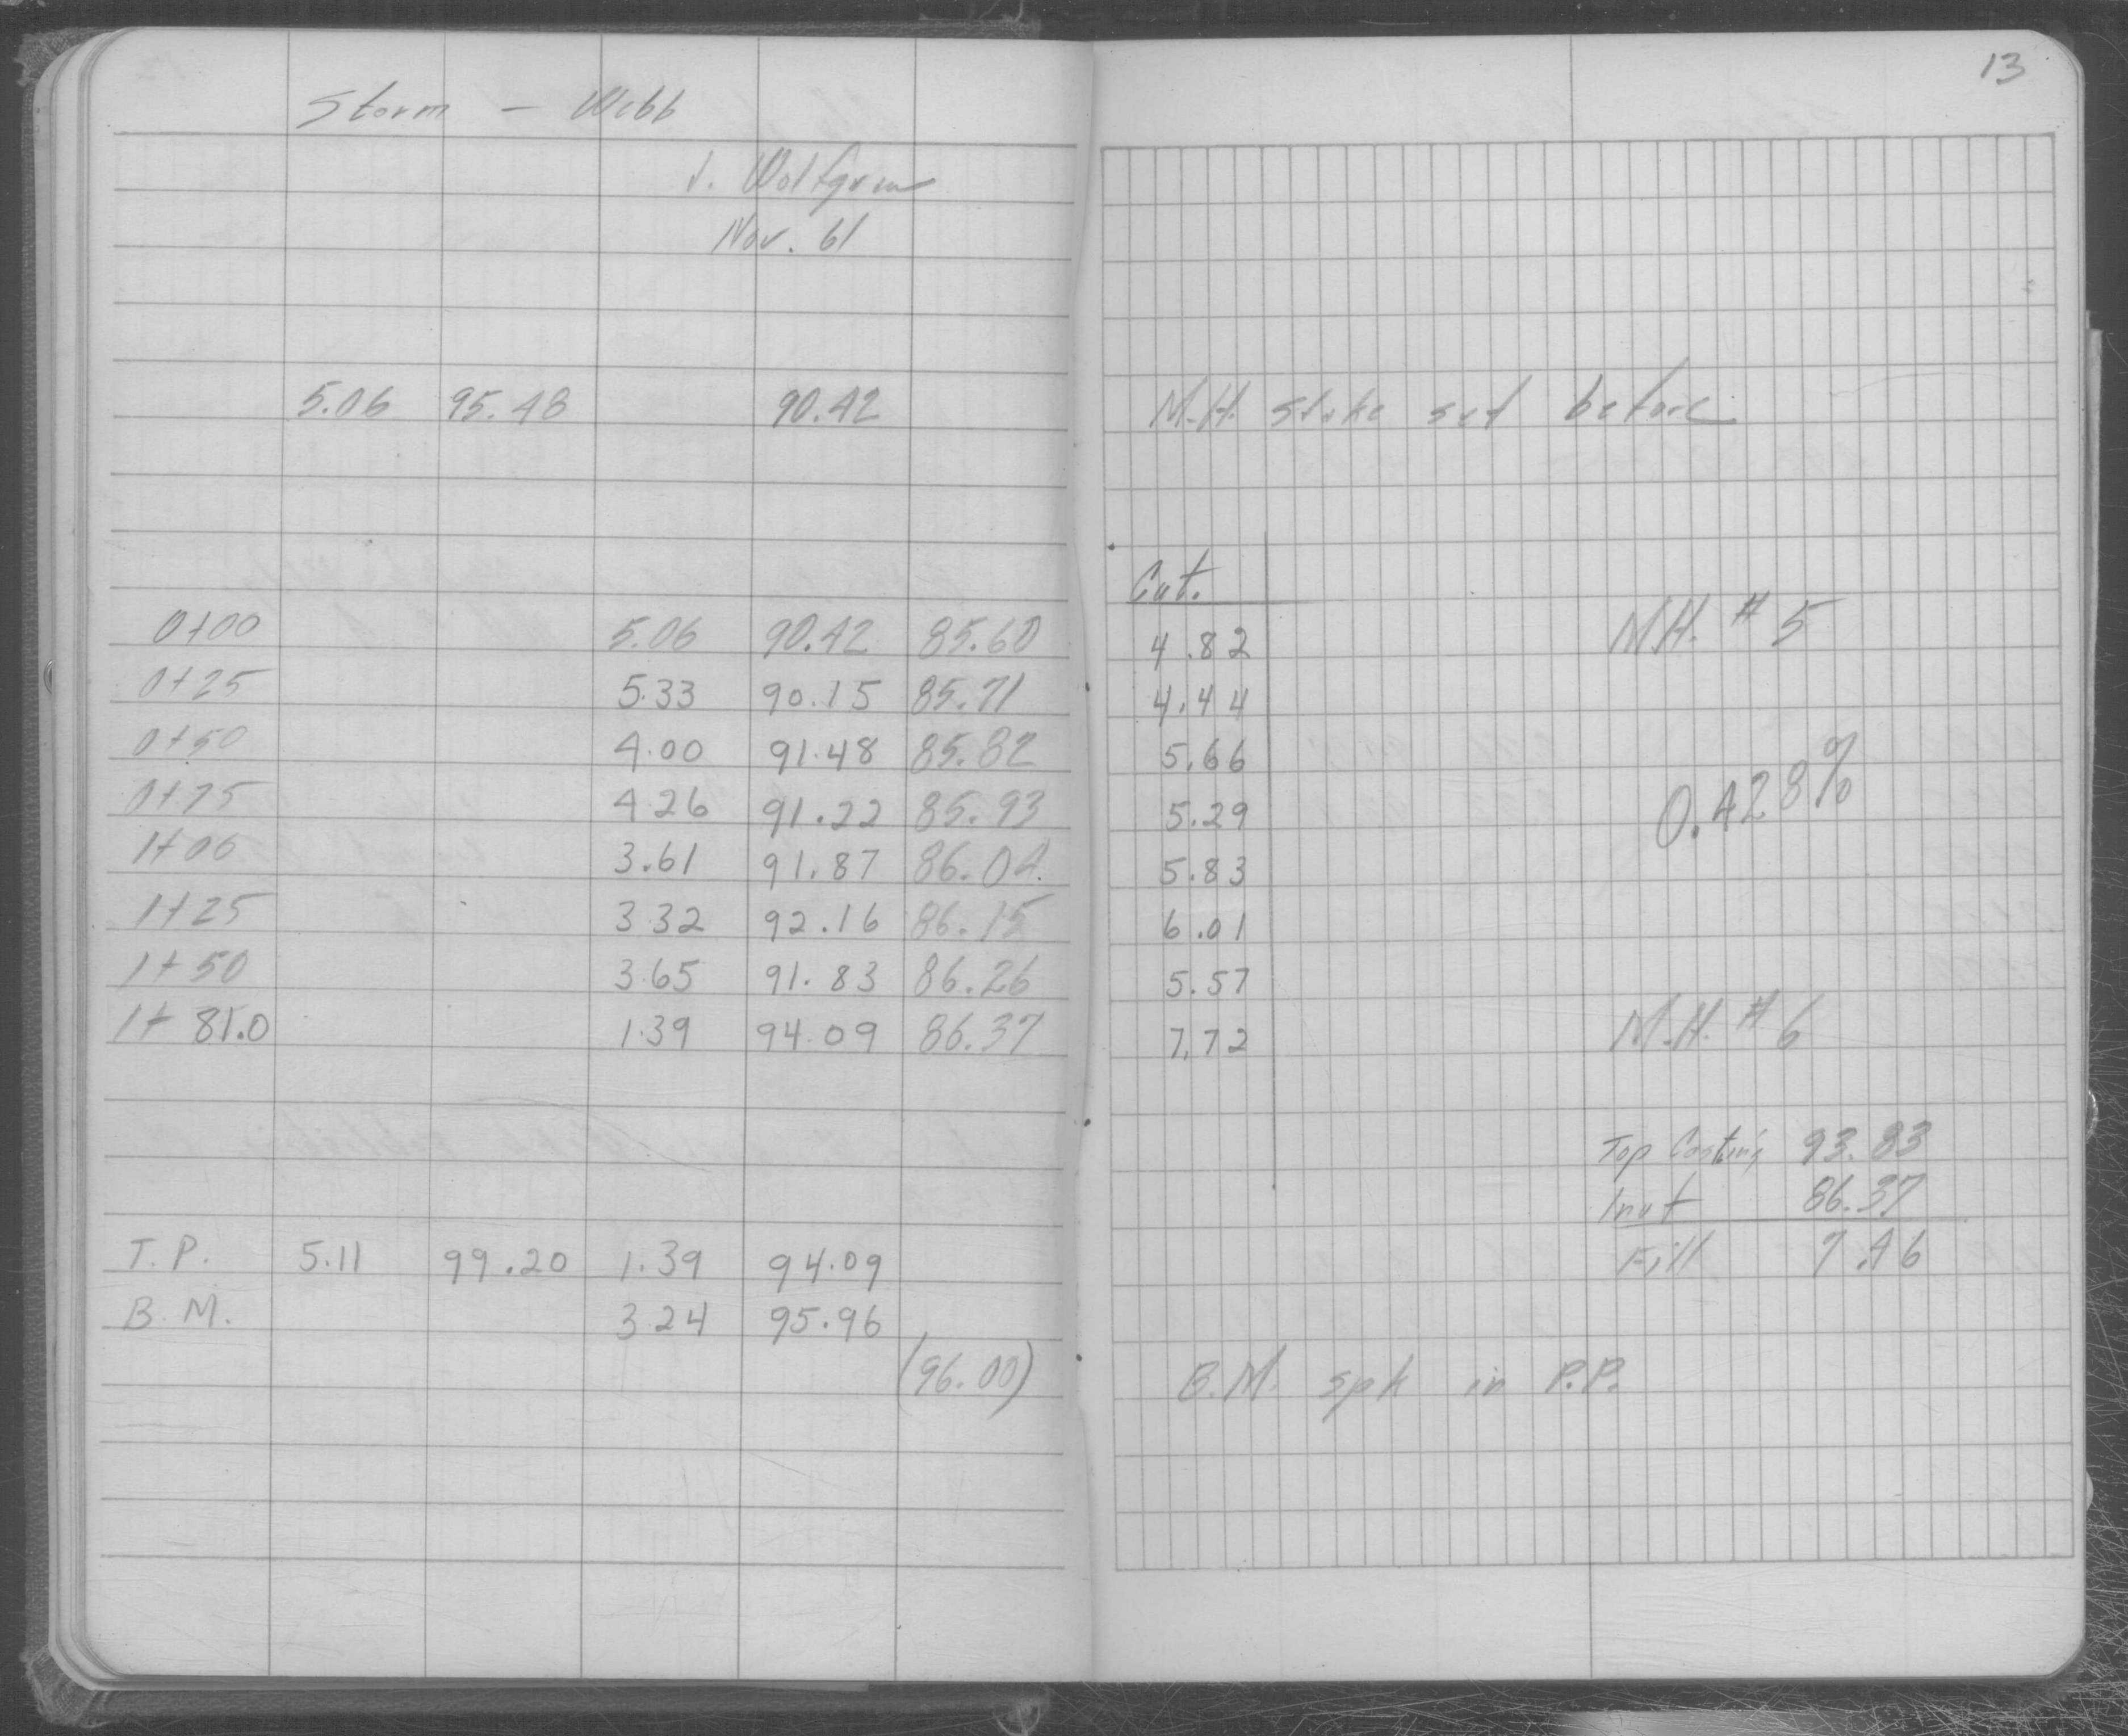 13
Storm - Webb
J. Wolfgram
Nov. 61
5.06 95.48 90.42 M.H. stake set before
Cut.
0+00 5.06 90.42 85.60 4.82 M.H. # 5
0+25 5.33 90.15 85.71 4.44
0+50 4.00 91.48 85.82 5.66
0+75 4.26 91.22 85.93 5.29 0.428%
1+00 3.61 91.87 86.04 5.83
1+25 3.32 92.16 86.15 6.01
1+50 3.65 91.83 86.26 5.57
1+81.0 1.39 94.09 86.37 7.72 M.H. # 6
Top Casting 93.83
Invt 86.37
T.P. 5.11 99.20 1.39 94.09 Fill 7.46
B.M. 3.24 95.96
(96.00) B.M. spk in P.P.